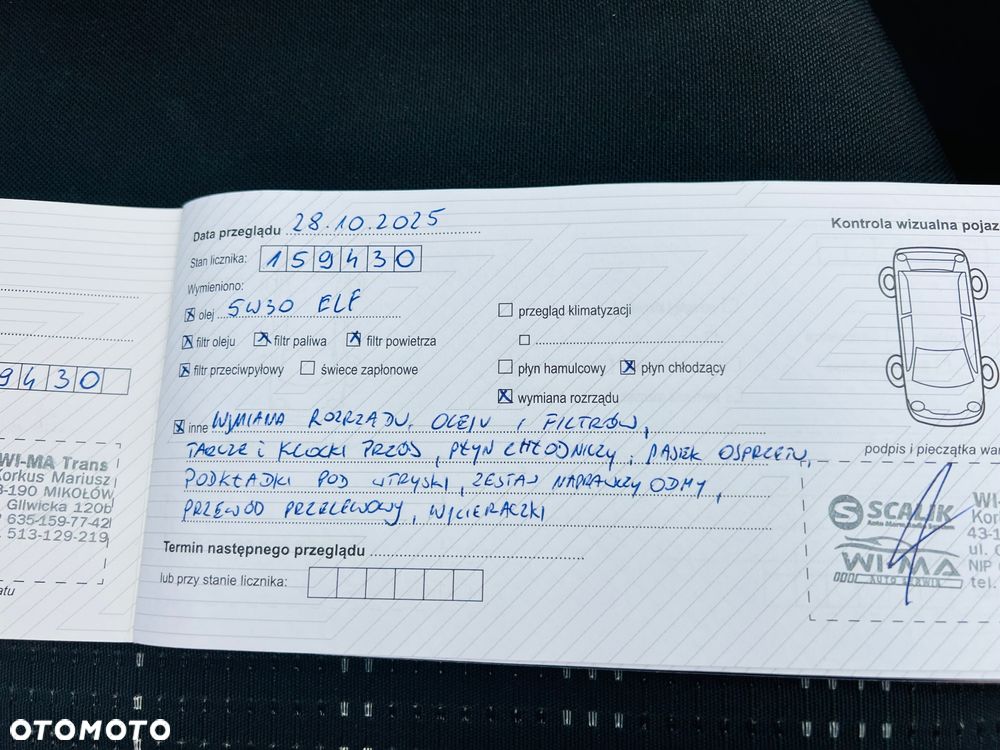 Data przeglądu 28.10.2025
Kontrola wizualna pojaz
Stan licznika: 159430
Wymieniono:
olej 5W30 ELF
przegląd klimatyzacji
filtr oleju filtr paliwa filtr powietrza
filtr przeciwpyłowy świece zapłonowe
płyn hamulcowy płyn chłodzący
wymiana rozrządu
inne WYMIANA ROZRZĄDU, OLEJU I FILTRÓW,
TARCZE I KLOCKI PRZÓD, PŁYN CHŁODNICZY, PASEK OSPRZĘTU,
PODKŁADKI POD WTRYSKI, ZESTAW NAPRAWCZY ODMY,
PRZEWÓD PRZELEWOWY, WYCIERACZKI
Termin następnego przeglądu
lub przy stanie licznika:
podpis i pieczątka war
SCALIK
WI-MA
AUTO SERWIS
WI-
Kor
43-1
ul. G
NIP
tel.
9430
WI-MA Trans
Korkus Mariusz
3-190 MIKOŁÓW
Gliwicka 120b
635-159-77-42
. 513-129-219
atu
OTOMOTO